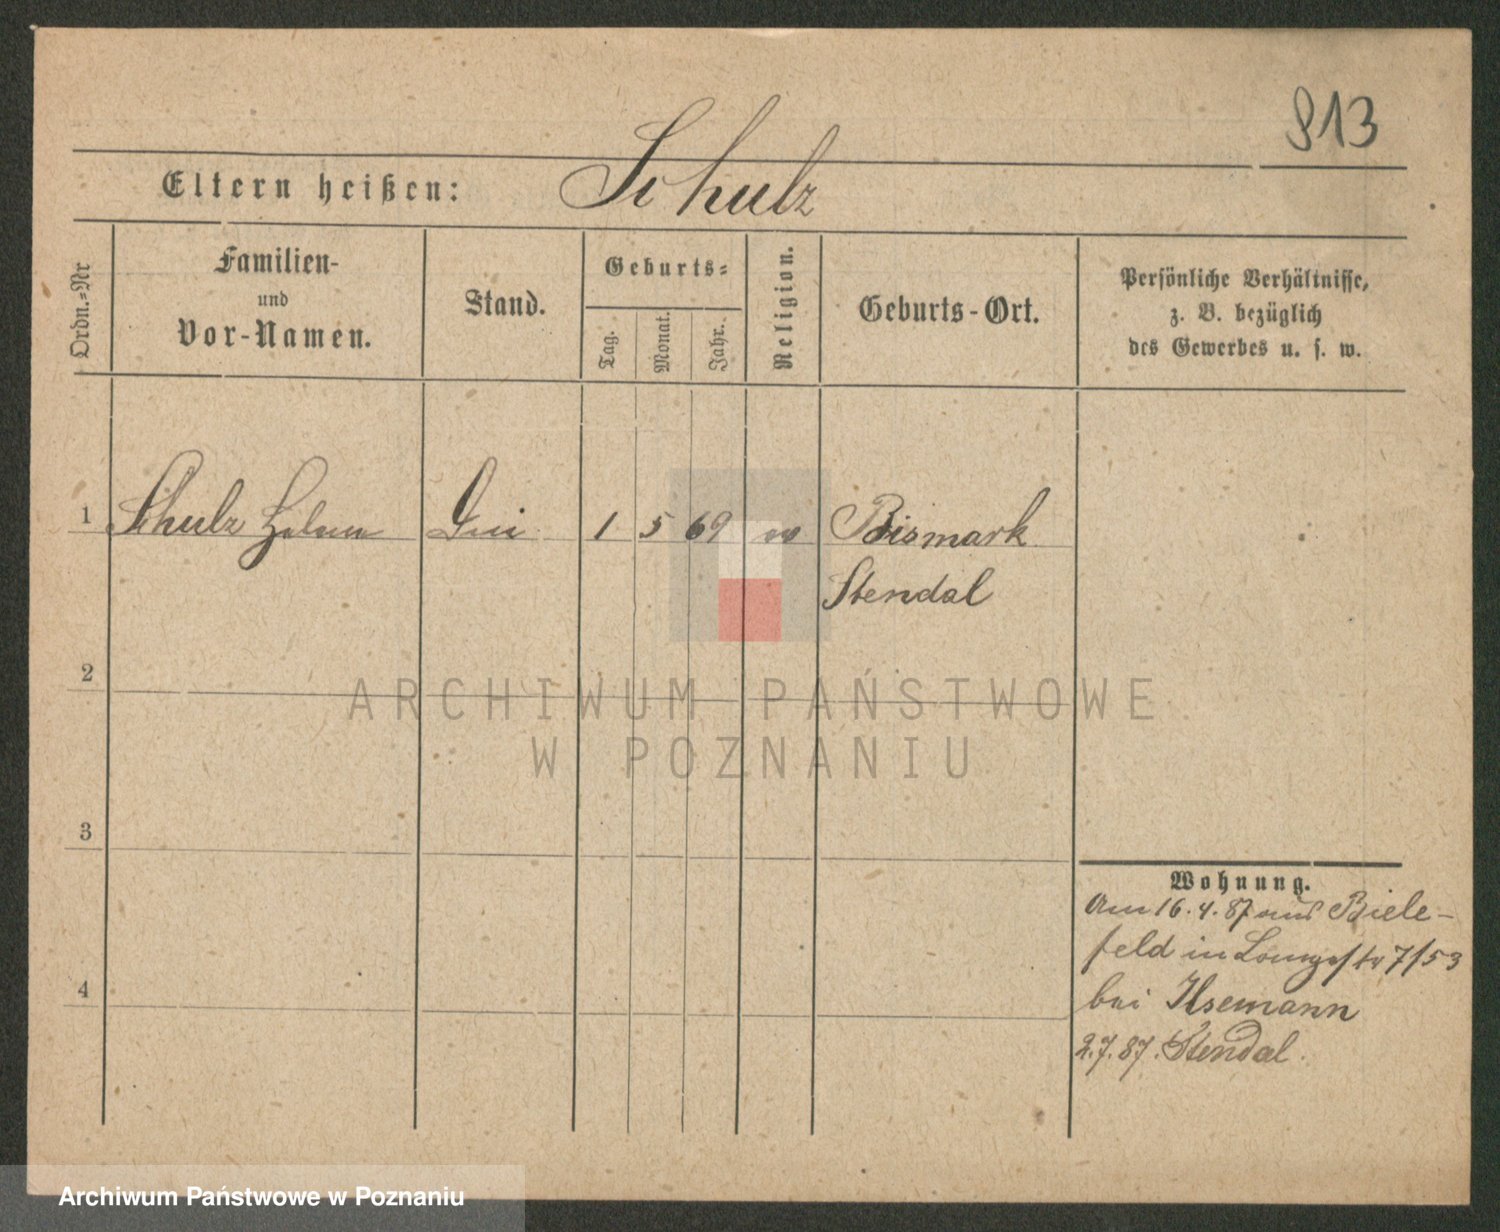 813
Eltern heißen: Schulz
Ordn.=Nr
Familien-
und
Vor-Namen.
Stand.
Geburts=
Tag.
Monat.
Jahr.
Religion.
Geburts-Ort.
Persönliche Verhältnisse,
z. B. bezüglich
des Gewerbes u. s. w.
1 Schulz 1 5 69 Bismark
Stendal
2
3
4
Wohnung.
Am 16.4.87 aus Biele-
feld in 7/53
bei Ilsemann
2.7.87. Stendal.
ARCHIWUM PAŃSTWOWE
W POZNANIU
Archiwum Państwowe w Poznaniu